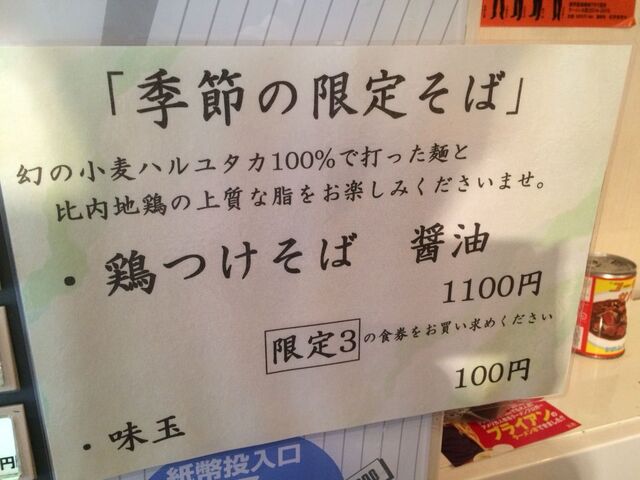 「季節の限定そば」
幻の小麦ハルユタカ100%で打った麺と
比内地鶏の上質な脂をお楽しみくださいませ。
・鶏つけそば　醤油
1100円
限定3の食券をお買い求めください
100円
・味玉
紙幣投入口
ブライアン
円